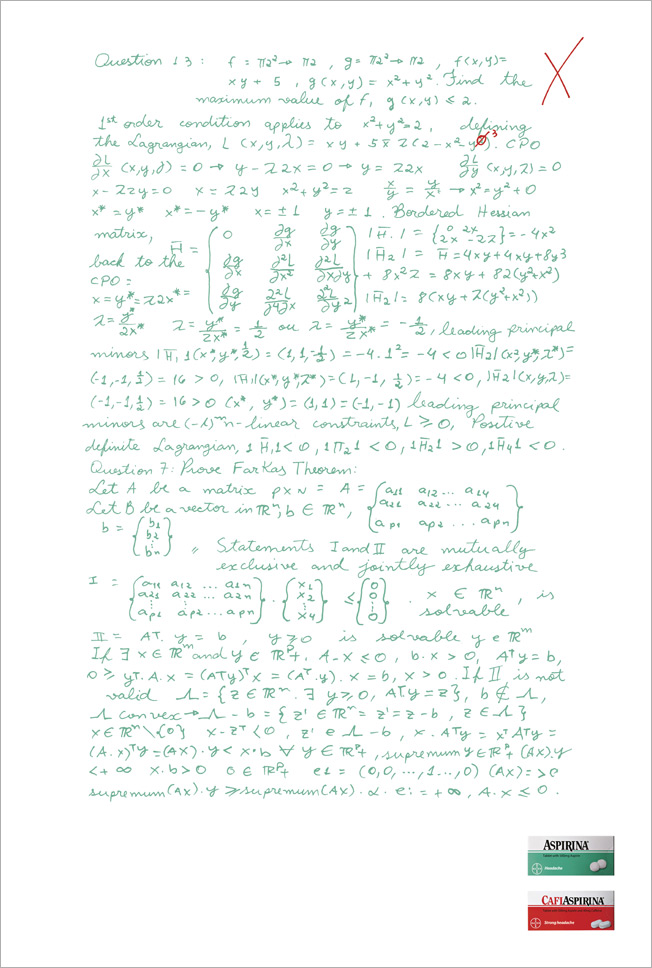 Question 13: f = π2²→ π2, g = π2²→ π2, f(x,y)=
xy + 5, g(x,y) = x² + y². Find the
maximum value of f, g(x,y) ≤ 2.
1st order condition applies to x²+y²=2, defining
the Lagrangian, L (x,y,λ) = xy + 5 (2 - x² y ). CPO
3
∂L/∂x (x,y,λ) = 0 → y - 22x = 0 → y = 22x ∂L/∂y (x,y,2) = 0
x - 22y = 0 x = 22y x² + y² = 2 x/y = y/x → x² = y² + 0
x* = y* x* = -y* x = ± 1 y = ± 1. Bordered Hessian
matrix,
back to the
CPO=
x = y* = 22x* =
H̄ = ( 0 ∂g/∂x ∂g/∂y
∂g/∂x ∂²L/∂x² ∂²L/∂x∂y
∂g/∂y ∂²L/∂y∂x ∂²L/∂y² )
|H̄.| = { 0 2x 2x -22 } = -4x²
|H̄2| = H̄ = 4xy + 4xy + 8y²
+ 8x²2 = 8xy + 82(y²+x²)
|H̄2| = 8(xy + 2(y²+x²))
2 = y*/2x* 2 = y*/2x* = 1/2 ou 2 = y*/2x* = -1/2, leading principal
minors |H̄,1(x*,y*,1/2) = (1,1,-1/2) = -4.1² = -4 < 0 |H̄2|(x*,y*,2*)=
(-1,-1,1/2) = 16 > 0, |H̄1|(x*,y*,2*) = (1,-1,1/2) = -4 < 0, |H̄2|(x,y,2)=
(-1,-1,1/2) = 16 > 0 (x*, y*) = (1,1) = (-1,-1) leading principal
minors are (-1)ᵐn-linear constraints, L ≥ 0, Positive
definite Lagrangian, 1H̄,1<0, 1π21 <0, 1H̄21 >0, 1H̄41 <0.
Question 7: Prove FarKas Theorem:
Let A be a matrix p×N = A = { a11 a12 ... a14
Let B be a vector in ℝⁿ, b ∈ ℝⁿ, a21 a22 ... a24
ap1 ap2 ... apn }
b = { b1 b2 ⋮ bn } „ Statements I and II are mutually
exclusive and jointly exhaustive
I = { a11 a12 ... a1n
a21 a22 ... a2n
ap1 ap2 ... apn } . { x1 x2 ⋮ x4 } ≤ { 0 0 ⋮ 0 } . x ∈ ℝⁿ, is
solvable
II = AT. y = b, y ≥ 0 is solvable y e ℝᵐ
If ∃ x ∈ ℝᵐ and y ∈ ℝᵖ+, A.x ≤ 0, b.x > 0, Aᵀy = b,
0 ≥ yᵀ.A.x = (Aᵀy)ᵀx = (Aᵀ.y).x = b, x > 0. If II is not
valid Λ = {z ∈ ℝⁿ. ∃ y ≥ 0, Aᵀy = z}, b ∉ Λ,
Λ convex → Λ - b = {z' ∈ ℝⁿ = z' = z - b, z ∈ Λ}
x ∈ ℝⁿ\{0} x - zᵀ < 0, z' e Λ - b, x.Aᵀy = xᵀAᵀy =
(A.x)ᵀy = (AX).y < x.b ∀ y ∈ ℝᵖ+, supremum y ∈ ℝᵖ+ (AX).y
< + ∞ x.b > 0 0 ∈ ℝᵖ+ e1 = (0,0,...,1...,0) (AX) = > e
supremum (AX).y ≥ supremum (AX). α. ei = + ∞, A.x ≤ 0.
ASPIRINA
Headache
CAFIASPIRINA
Strong headache